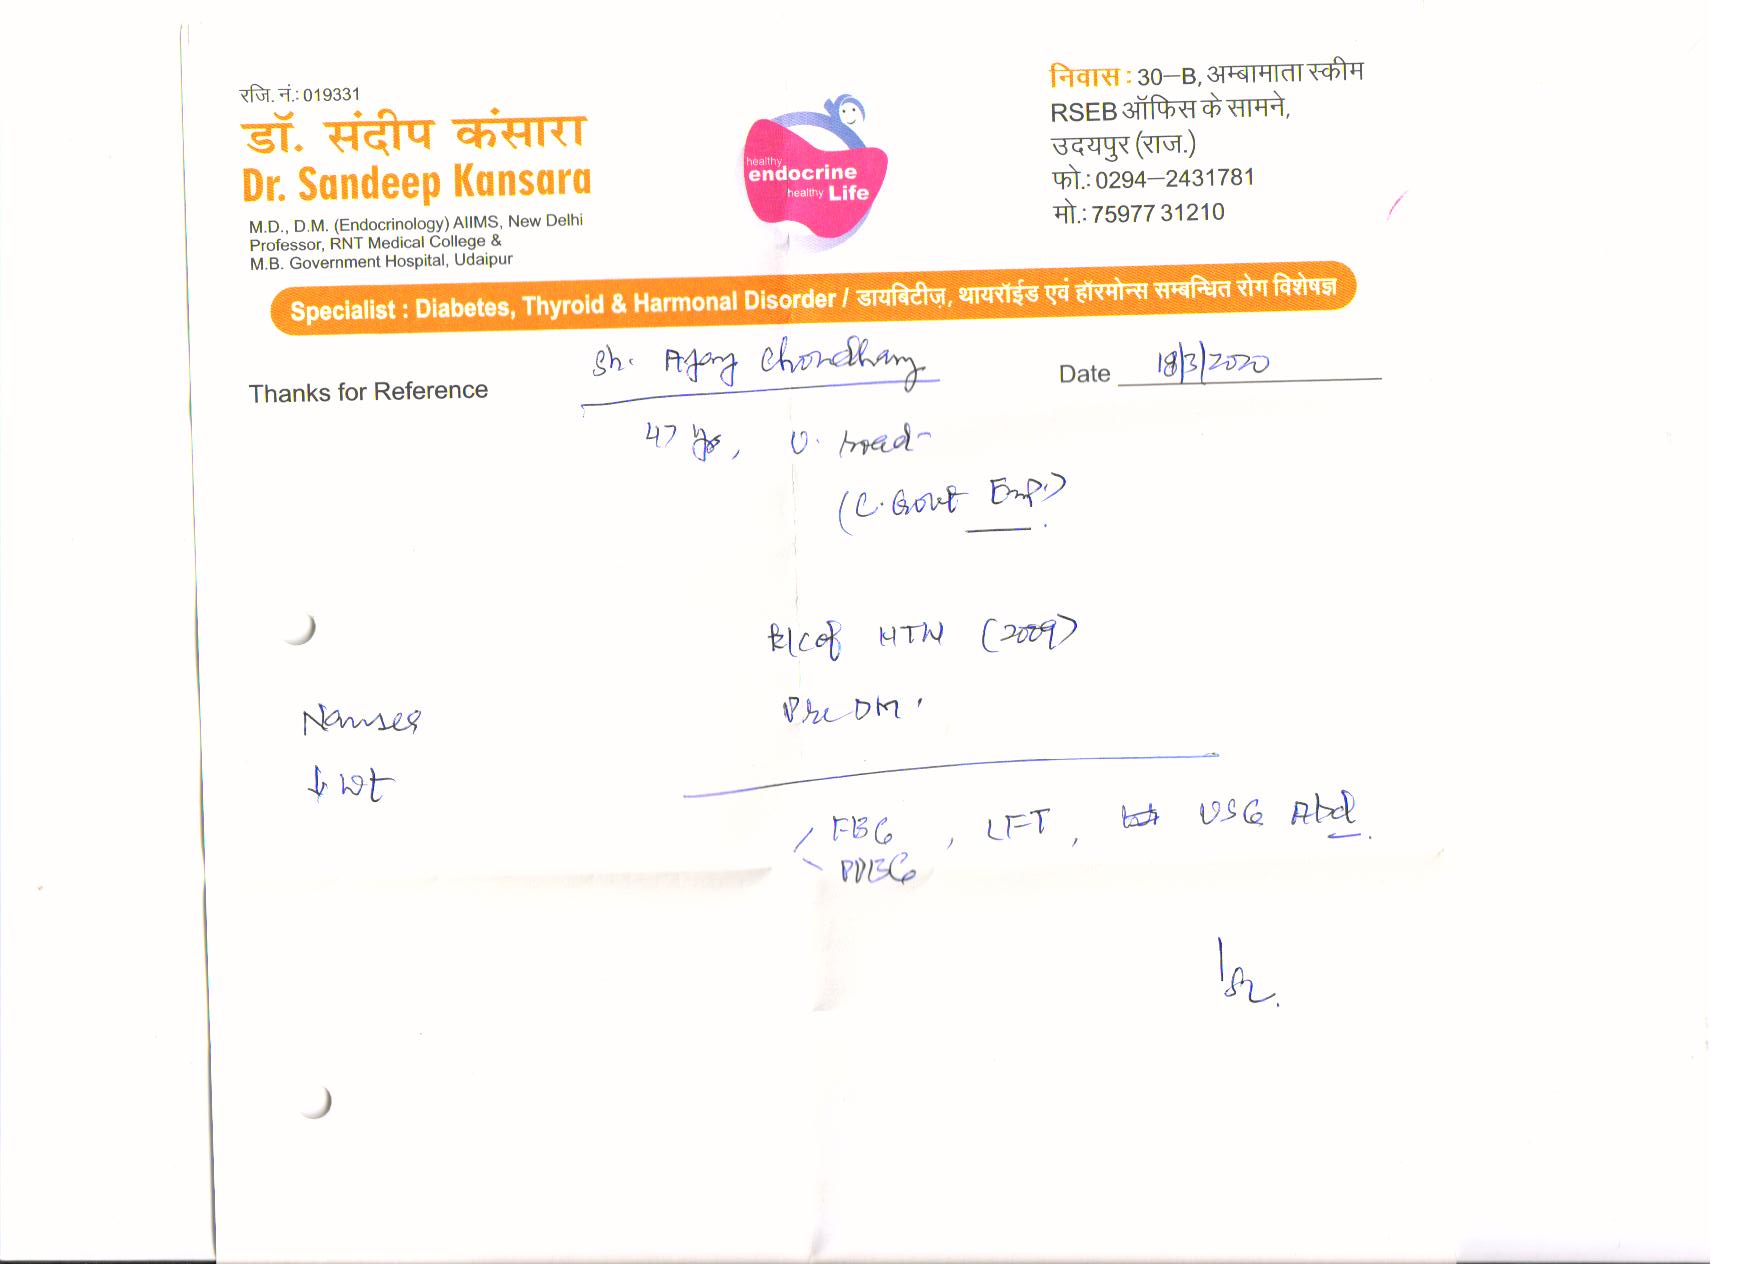 रजि. नं.: 019331
डॉ. संदीप कंसारा
Dr. Sandeep Kansara
M.D., D.M. (Endocrinology) AIIMS, New Delhi
Professor, RNT Medical College &
M.B. Government Hospital, Udaipur
healthy
endocrine
healthy Life
निवास : 30–B, अम्बामाता स्कीम
RSEB ऑफिस के सामने,
उदयपुर (राज.)
फो.: 0294–2431781
मो.: 75977 31210
Specialist : Diabetes, Thyroid & Harmonal Disorder / डायबिटीज़, थायरॉईड एवं हॉरमोन्स सम्बन्धित रोग विशेषज्ञ
Thanks for Reference
Sh. Ajay Choudhary
Date 18/3/2020
47 yrs,
(C. Govt Emp.)
K/c of HTN (2009)
Pre DM
Nausea
↓ wt
FBG, LFT, USG Abd.
PPBG